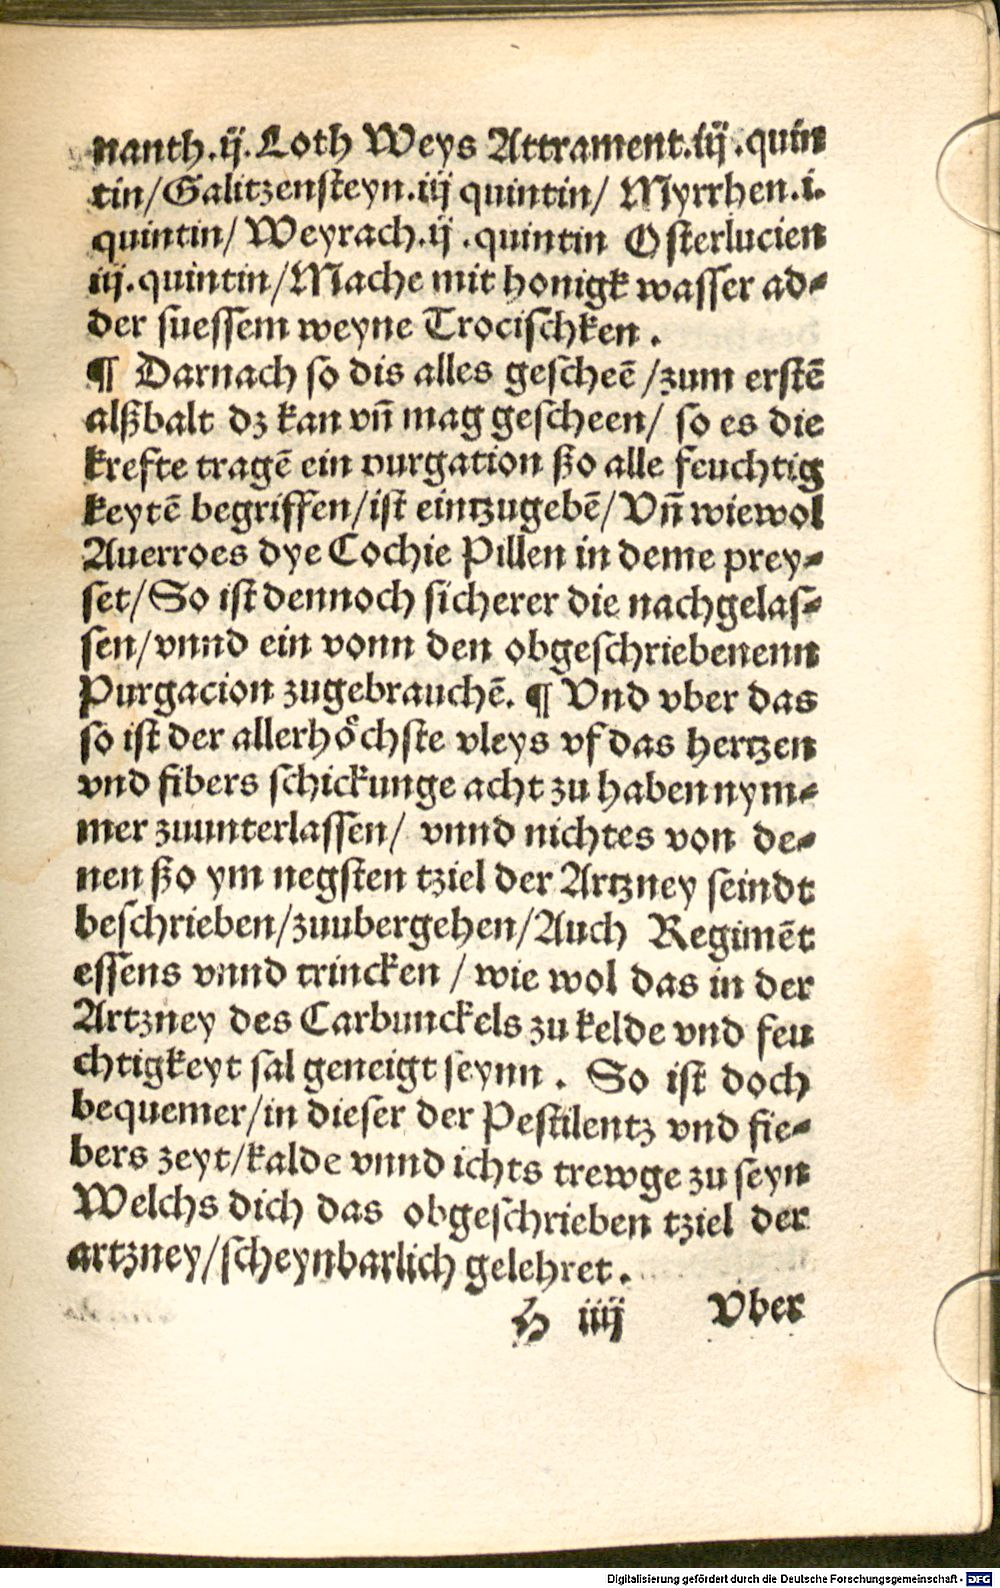 nanth.ij.Loth Weys Attrament.iij.quin
tin/Galitzensteyn.iij quintin/ Myrrhen.i.
quintin/ Weyrach.ij.quintin Osterlucien
iij.quintin/Mache mit honigk wasser ad⸗
der suessem weyne Trocischken.
¶ Darnach so dis alles gescheē/zum erstē
alßbalt dz kan vn̄ mag gescheen/ so es die
krefte tragē ein purgation ßo alle feuchtig
keytē begriffen/ist eintzugebē/Vn̄ wiewol
Auerroes dye Cochie Pillen in deme prey⸗
set/So ist dennoch sicherer die nachgelas⸗
sen/vnnd ein vonn den obgeschriebenenn
Purgacion zugebrauchē. ¶ Vnd vber das
so ist der allerhöchste vleys vf das hertzen
vnd fibers schickunge acht zu haben nym⸗
mer zuunterlassen/ vnnd nichtes von de⸗
nen ßo ym negsten tziel der Artzney seindt
beschrieben/zuubergehen/Auch Regimēt
essens vnnd trincken/wie wol das in der
Artzney des Carbunckels zu kelde vnd feu
chtigkeyt sal geneigt seynn. So ist doch
bequemer/in dieser der Pestilentz vnd fie⸗
bers zeyt/kalde vnnd ichts trewge zu seyn
Welchs dich das obgeschrieben tziel der
artzney/scheynbarlich gelehret.
H iiij Vber
Digitalisierung gefördert durch die Deutsche Forschungsgemeinschaft - DFG